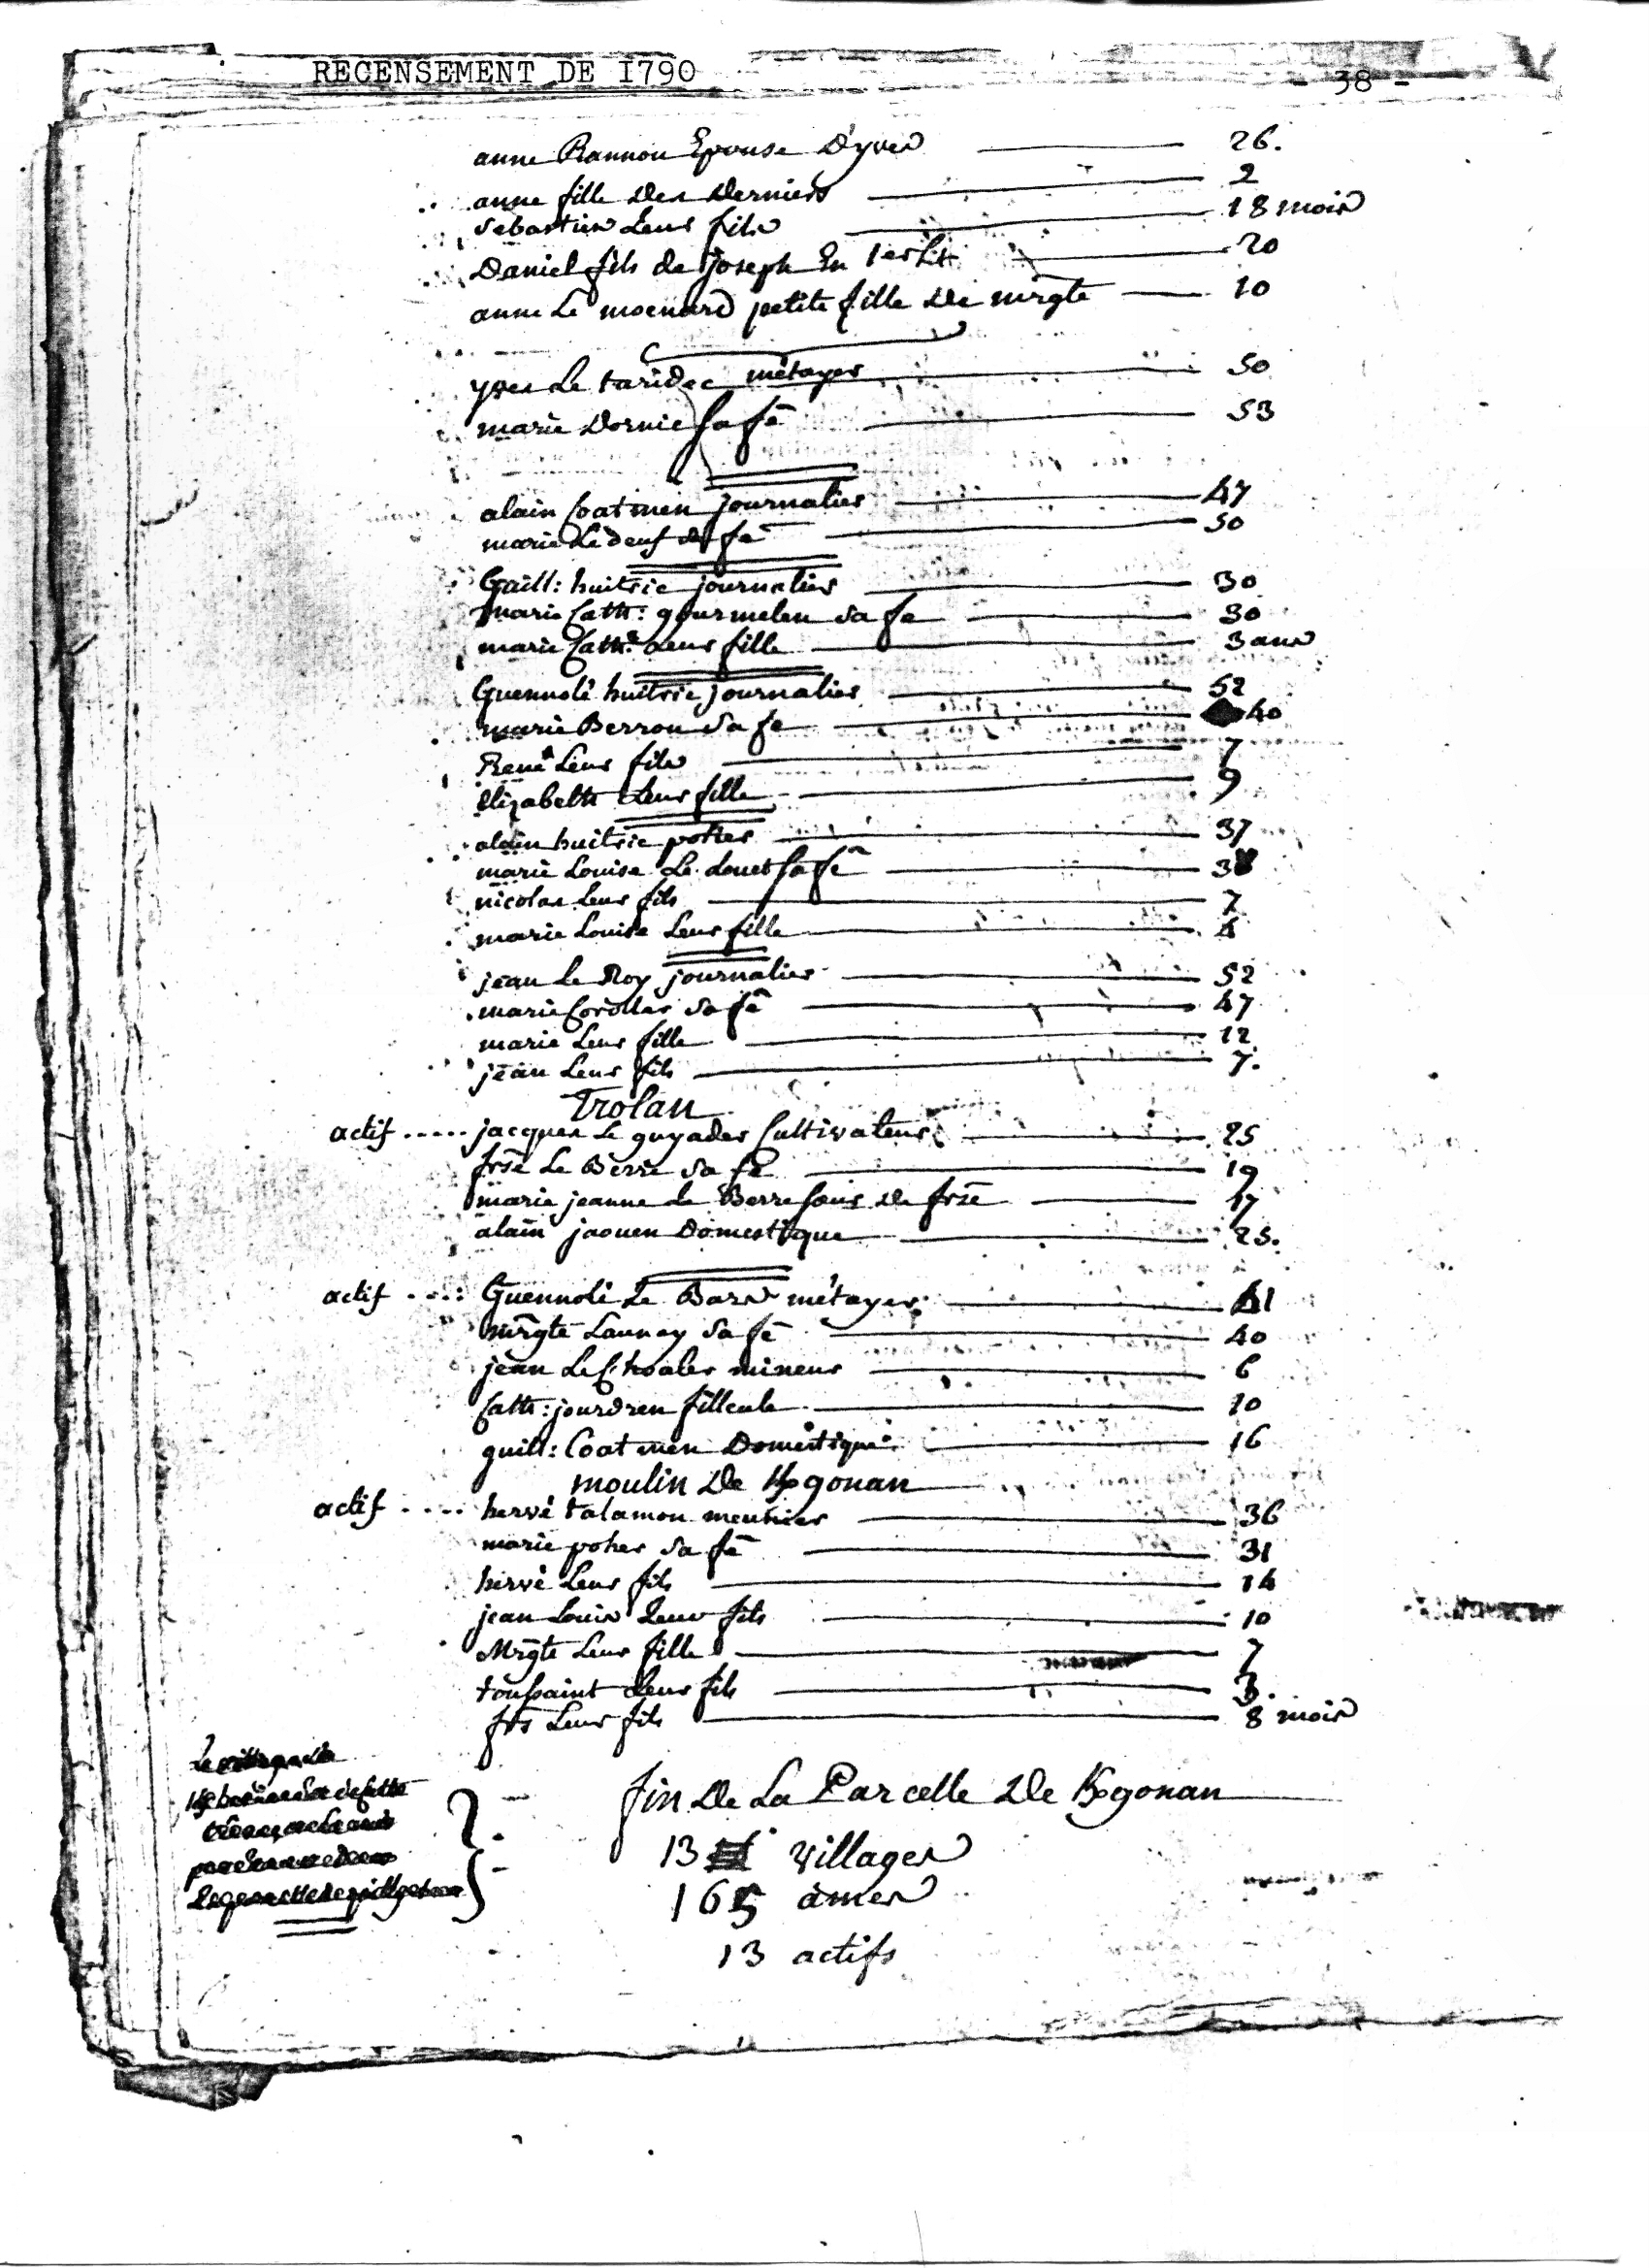 RECENSEMENT DE I790 - 38 -
anne Rannou Epouse D'yves 26.
anne fille des Derniers 2
sebastien Leur fils 18 mois
Daniel fils de joseph En 1er Lit 20
anne Le moenard petite fille De mrgte 10
yves Le taridec métayer 50
marie Dornic sa fe 53
alain Coatmen journalier 47
marie Le deuf sa fe 50
Guill: huitric journalier 30
marie Cath: gourmelen sa fe 30
marie Cath: Leur fille 3 ans
Guennolé huitric journalier 52
marie Berrou sa fe 40
René Leur fils 7
Elizabeth Leur fille 9
alain huitric potier 37
marie Louise Le douet sa fe
nicolas Leur fils 7
marie Louise Leur fille 4
jean Le Roy journalier 52
marie Coroller sa fe 47
marie Leur fille 12
jean Leur fils 7.
Trolan
actif ..... jacques Le guyader Cultivateur 25
frse Le Berre sa fe 19
marie jeanne Le Berre soeur De frse 17
alain jaouen Domestique 25.
actif .... Guennolé Le Bars métayer 41
mrgte Launay sa fe 40
jean Le mineur 6
Cath: jourdren filleule 10
guill: Coatmen Domestique 16
moulin De Kgonan
actif .... hervé talamon meunier 36
marie poher sa fe 31
hervé Leur fils 14
jean Louis Leur fils 10
Mrgte Leur fille 7
toussaint Leur fils 3.
frs Leur fils 8 mois
fin De La Parcelle De Kgonan
13 villages
165 âmes
13 actifs